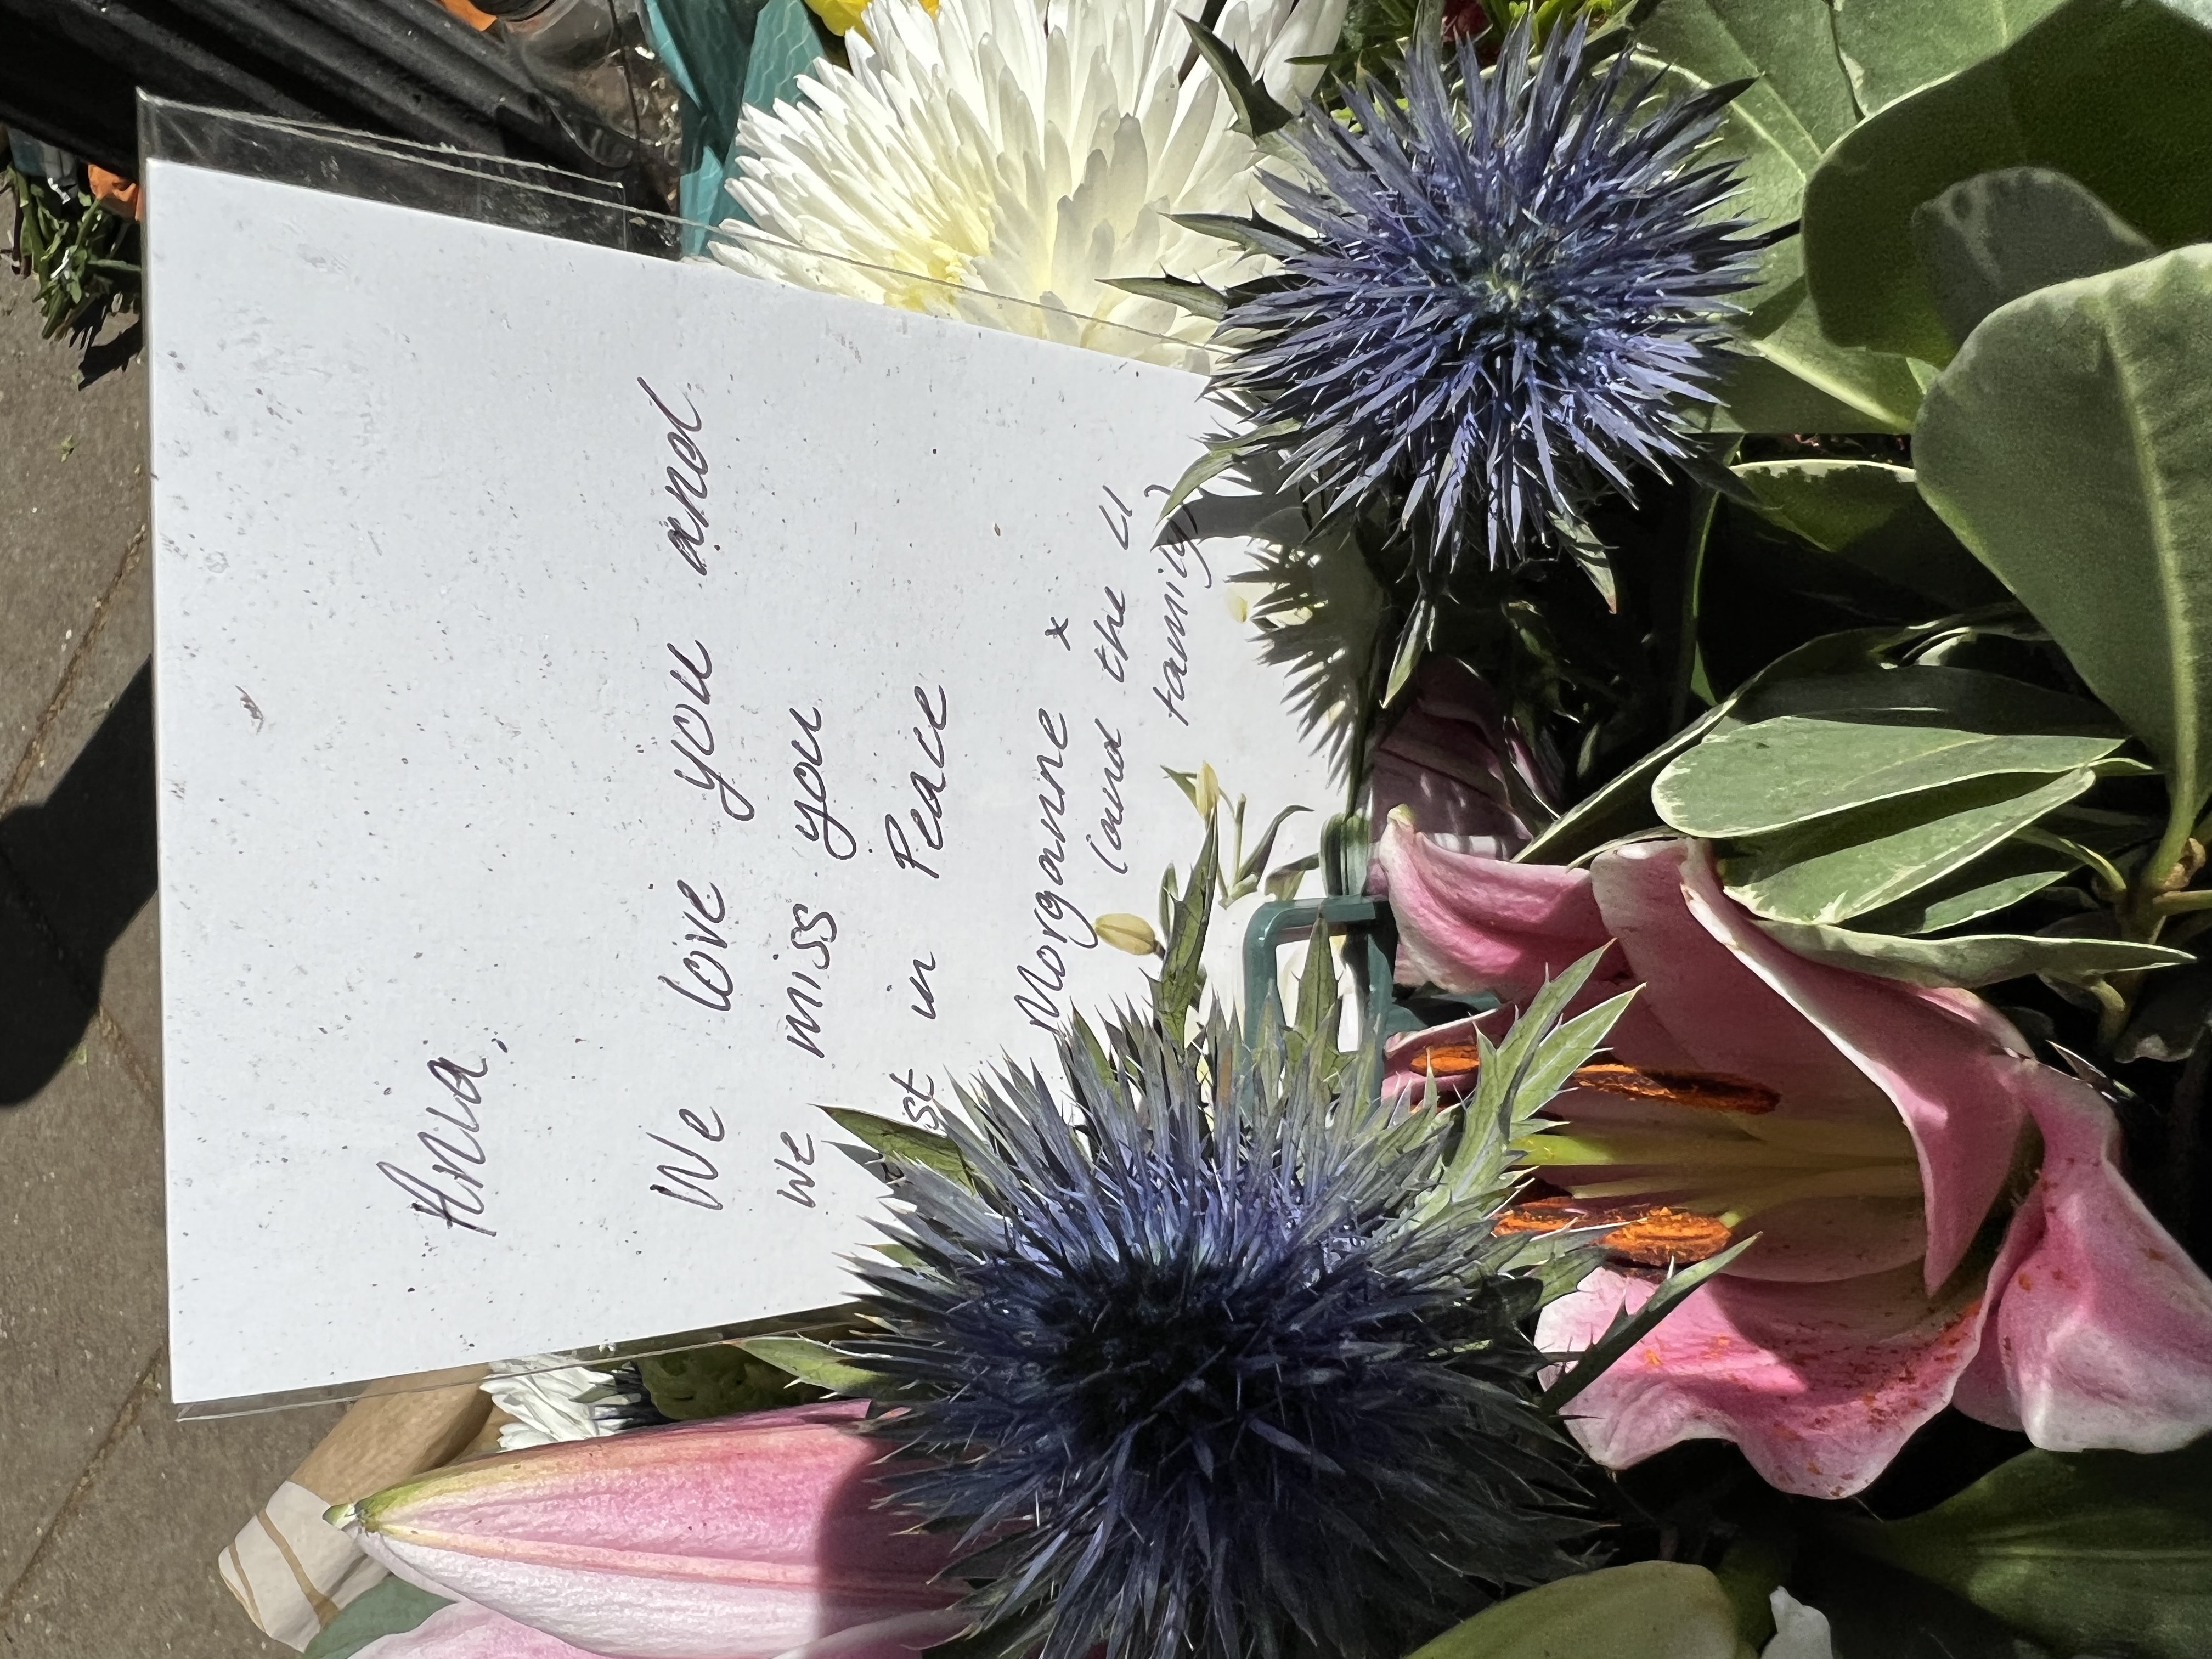 Ania,
We love you and
we miss you
st in Peace
Morganne x
(and the LI
family)